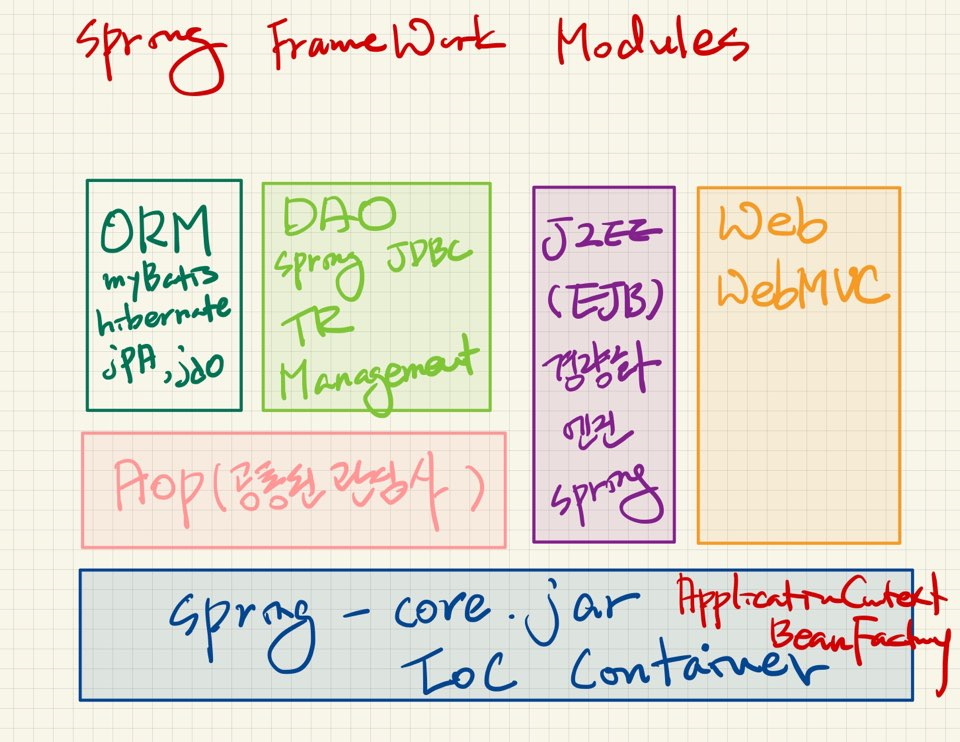 Spring FrameWork Modules
ORM
myBatis
hibernate
jPA, jdo
DAO
spring JDBC
TR
Management
J2EE
(EJB)
경량화
엔진
spring
Web
WebMVC
Aop(공통된 관심사)
spring - core.jar
IoC Container
ApplicationContext
BeanFactory